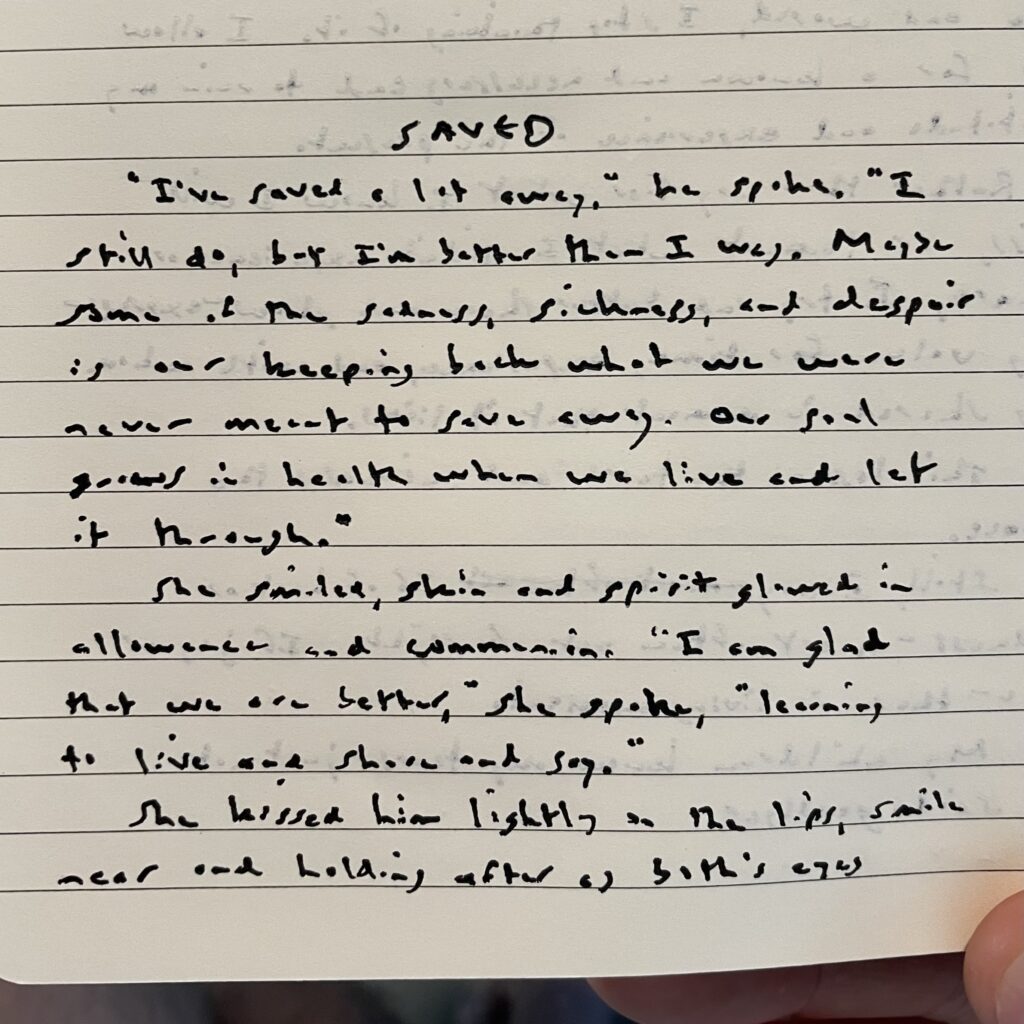 SAVED
"I've saved a lot away," he spoke. "I
still do, but I'm better than I was. Maybe
some of the sadness, sickness, and despair
is our keeping back what we were
never meant to save away. Our soul
grows in health when we live and let
it through."
She smiled, skin and spirit glowed in
allowance and communion. "I am glad
that we are better," she spoke, "learning
to live and share and say."
She kissed him lightly on the lips, smile
near and holding after as both's eyes